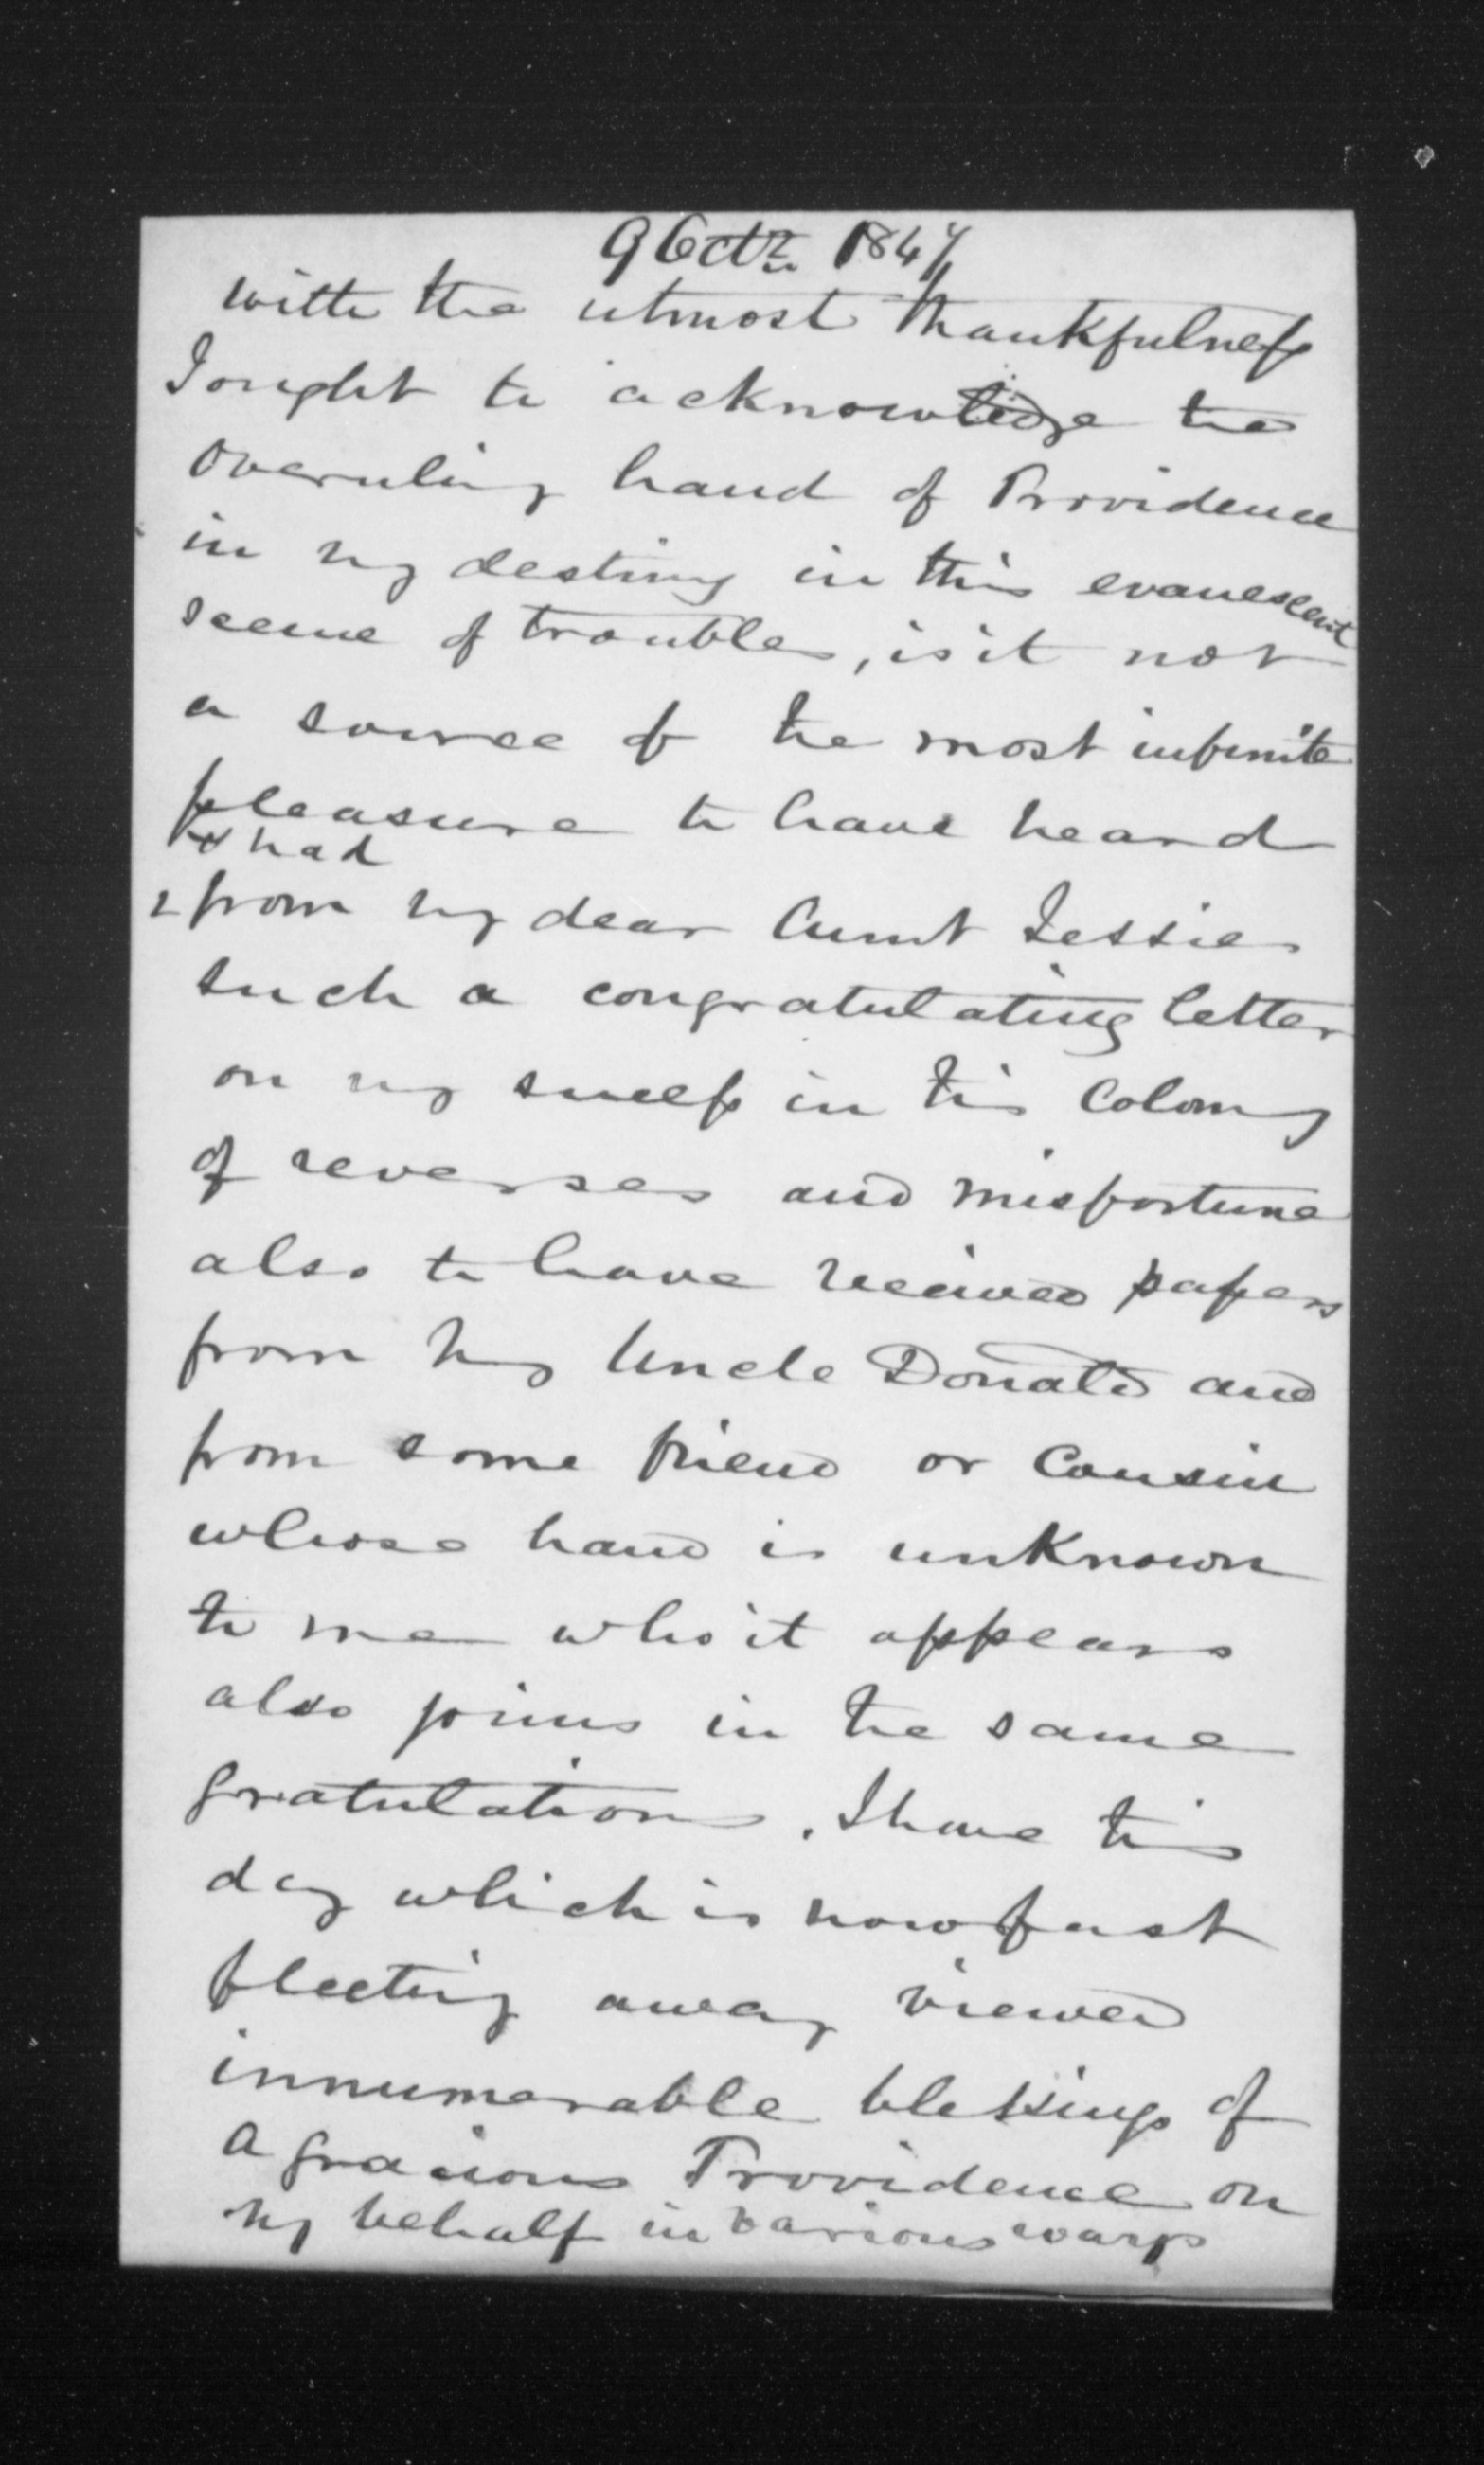 9 Octr 1847
with the utmost thankfulness
I ought to acknowledge the
overruling hand of Providence
in my destiny in this evanescent
scene of troubles, is it not
a source of the most infinite
pleasure to have heard
& had
from my dear Aunt Jessie
such a congratulating letter
on my success in this Colony
of reverses and misfortune
also to have received papers
from my Uncle Donald and
from some friend or Cousin
whose hand is unknown
to me who it appears
also joins in the same
gratulations. I have this
day which is now fast
fleeting away viewed
innumerable blessings of
a gracious Providence on
my behalf in various ways